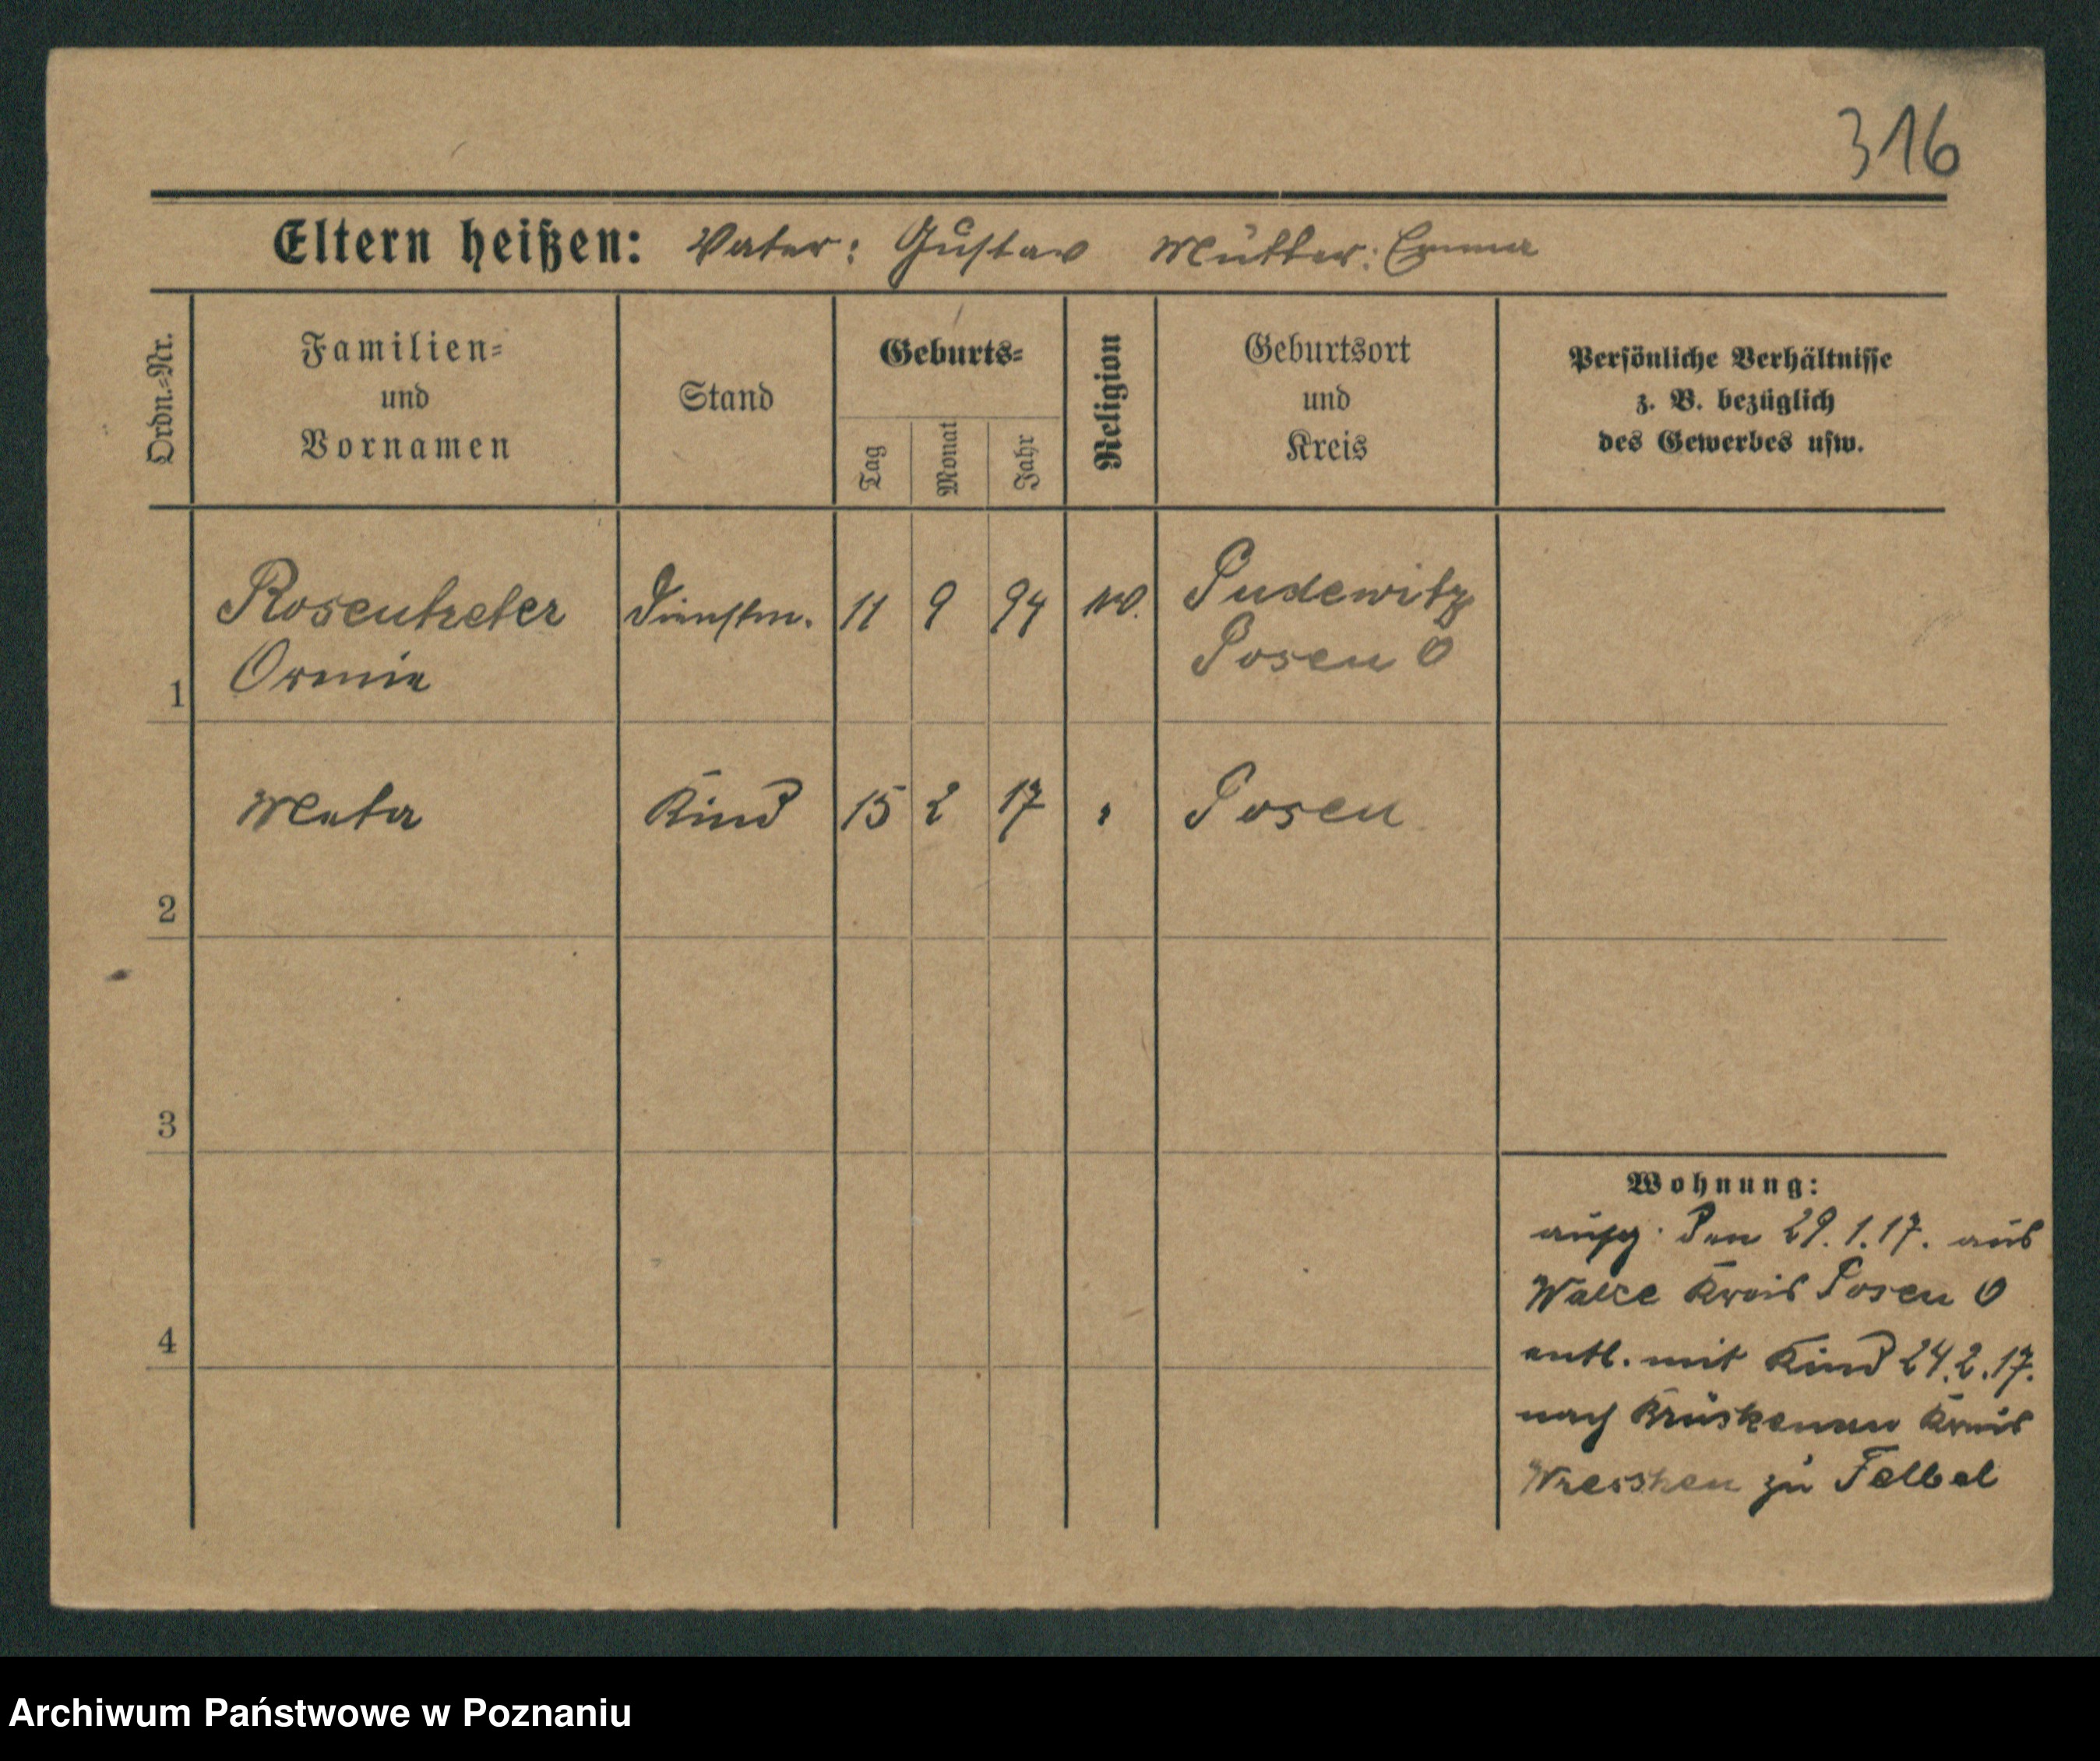 316
Eltern heißen: Vater: Gustav Mutter: Emma
Ordn.-Nr.
Familien-
und
Vornamen
Stand
Geburts-
Tag
Monat
Jahr
Religion
Geburtsort
und
Kreis
Persönliche Verhältnisse
z. B. bezüglich
des Gewerbes usw.
1
Rosentreter
Dienstm. 11 9 94
Pudewitz
Posen O
2
Meta Kind 15 2 17 " Posen
3
4
Wohnung:
aufg. den 29.1.17. aus
Kreis Posen O
entl. mit Kind 24.2.17.
nach Kreis
Wreschen zu
Archiwum Państwowe w Poznaniu